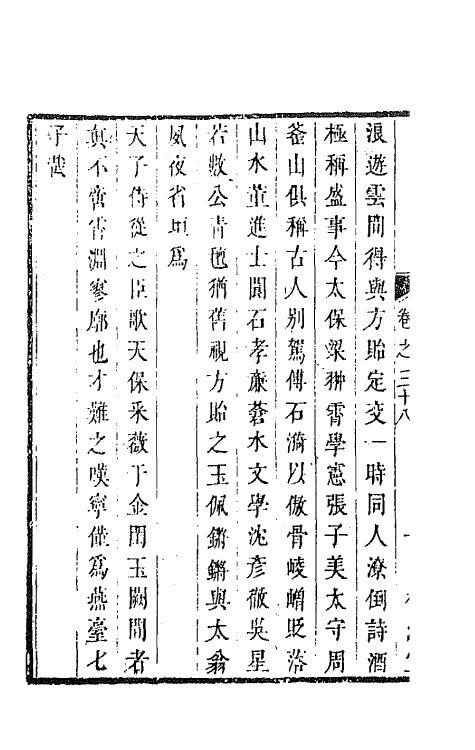 卷之二十八
浪遊雲間得與方貽定交一時同人潦倒詩酒
極稱盛事今太保梁翀霄學憲張子美太守周
釜山俱稱古人別駕傅石漪以傲骨崚嶒貶落
山水董進士閬石孝廉蒼水文學沈彥徹吳星
若數公青氊猶舊視方貽之玉佩鏘鏘與太翁
夙夜省垣為
天子侍從之臣歌天保采薇于金閨玉闕間者
真不啻霄淵寥廓也才難之嘆寧僅為燕臺七
子哉